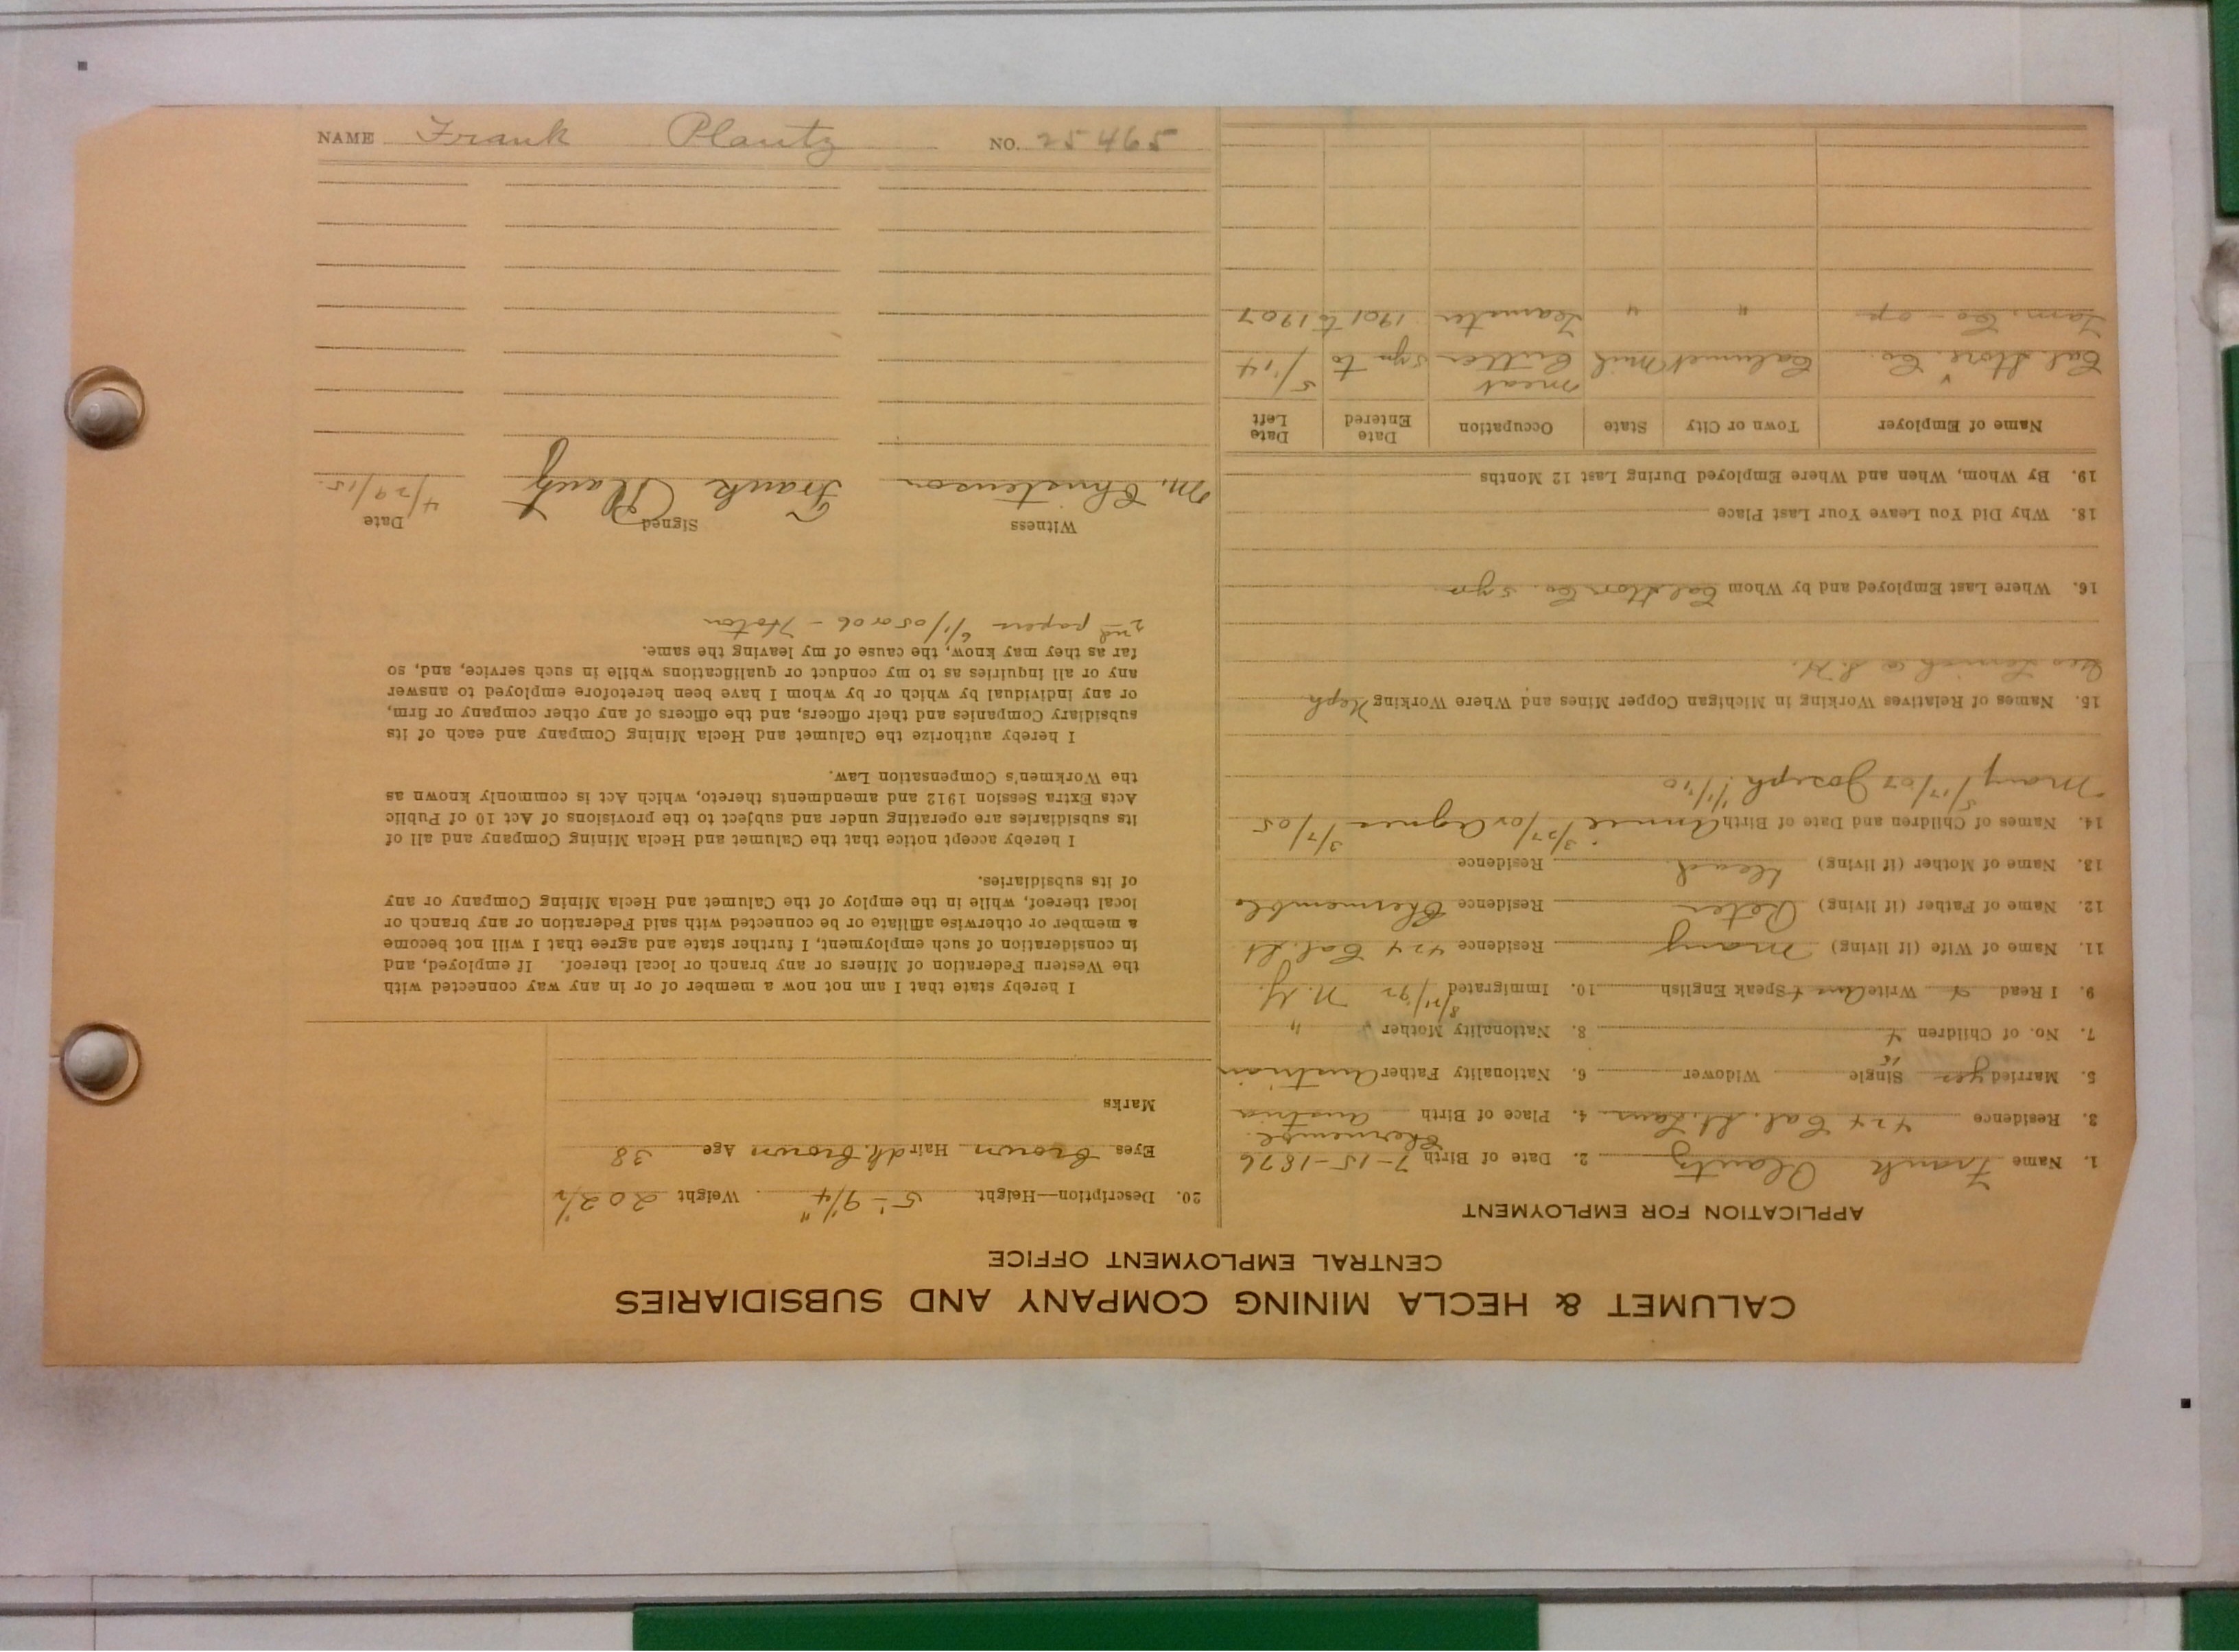 CALUMET & HECLA MINING COMPANY AND SUBSIDIARIES
CENTRAL EMPLOYMENT OFFICE
APPLICATION FOR EMPLOYMENT
1. Name Frank Plautz 2. Date of Birth 7-15-1876
3. Residence 424 Cal. St. Laur. 4. Place of Birth Austria
5. Married yes Single Widower 6. Nationality Father Austrian
7. No. of Children 4 8. Nationality Mother "
9. I Read Write Speak English 10. Immigrated N.Y.
11. Name of Wife (if living) Mary Residence 424 Cal. St
12. Name of Father (if living) Peter Residence
13. Name of Mother (if living) dead Residence
14. Names of Children and Date of Birth Annie Agnes 3/7/05
Mary 5/17/07 Joseph 1/1/10
15. Names of Relatives Working in Michigan Copper Mines and Where Working Neph
16. Where Last Employed and by Whom Cal Store Co.
18. Why Did You Leave Your Last Place
19. By Whom, When and Where Employed During Last 12 Months
Name of Employer Town or City State Occupation Date Entered Date Left
Cal. Store Co. Calumet Mich meat Cutter to 5/14
Tam. Co-op " " Teamster 1901 to 1907
20. Description—Height 5'-9 1/4" Weight 202 1/2
Eyes Brown Hair dk. Brown Age 38
Marks
I hereby state that I am not now a member of or in any way connected with
the Western Federation of Miners or any branch or local thereof. If employed, and
in consideration of such employment, I further state and agree that I will not become
a member or otherwise affiliate or be connected with said Federation or any branch or
local thereof, while in the employ of the Calumet and Hecla Mining Company or any
of its subsidiaries.
I hereby accept notice that the Calumet and Hecla Mining Company and all of
its subsidiaries are operating under and subject to the provisions of Act 10 of Public
Acts Extra Session 1912 and amendments thereto, which Act is commonly known as
the Workmen's Compensation Law.
I hereby authorize the Calumet and Hecla Mining Company and each of its
subsidiary Companies and their officers, and the officers of any other company or firm,
or any individual by which or by whom I have been heretofore employed to answer
any or all inquiries as to my conduct or qualifications while in such service, and, so
far as they may know, the cause of my leaving the same.
2nd papers 6/1/05 or 06 - Hoton
Witness Signed Date
M. Christenson Frank Plautz 4/29/15.
NAME Frank Plautz NO. 25465